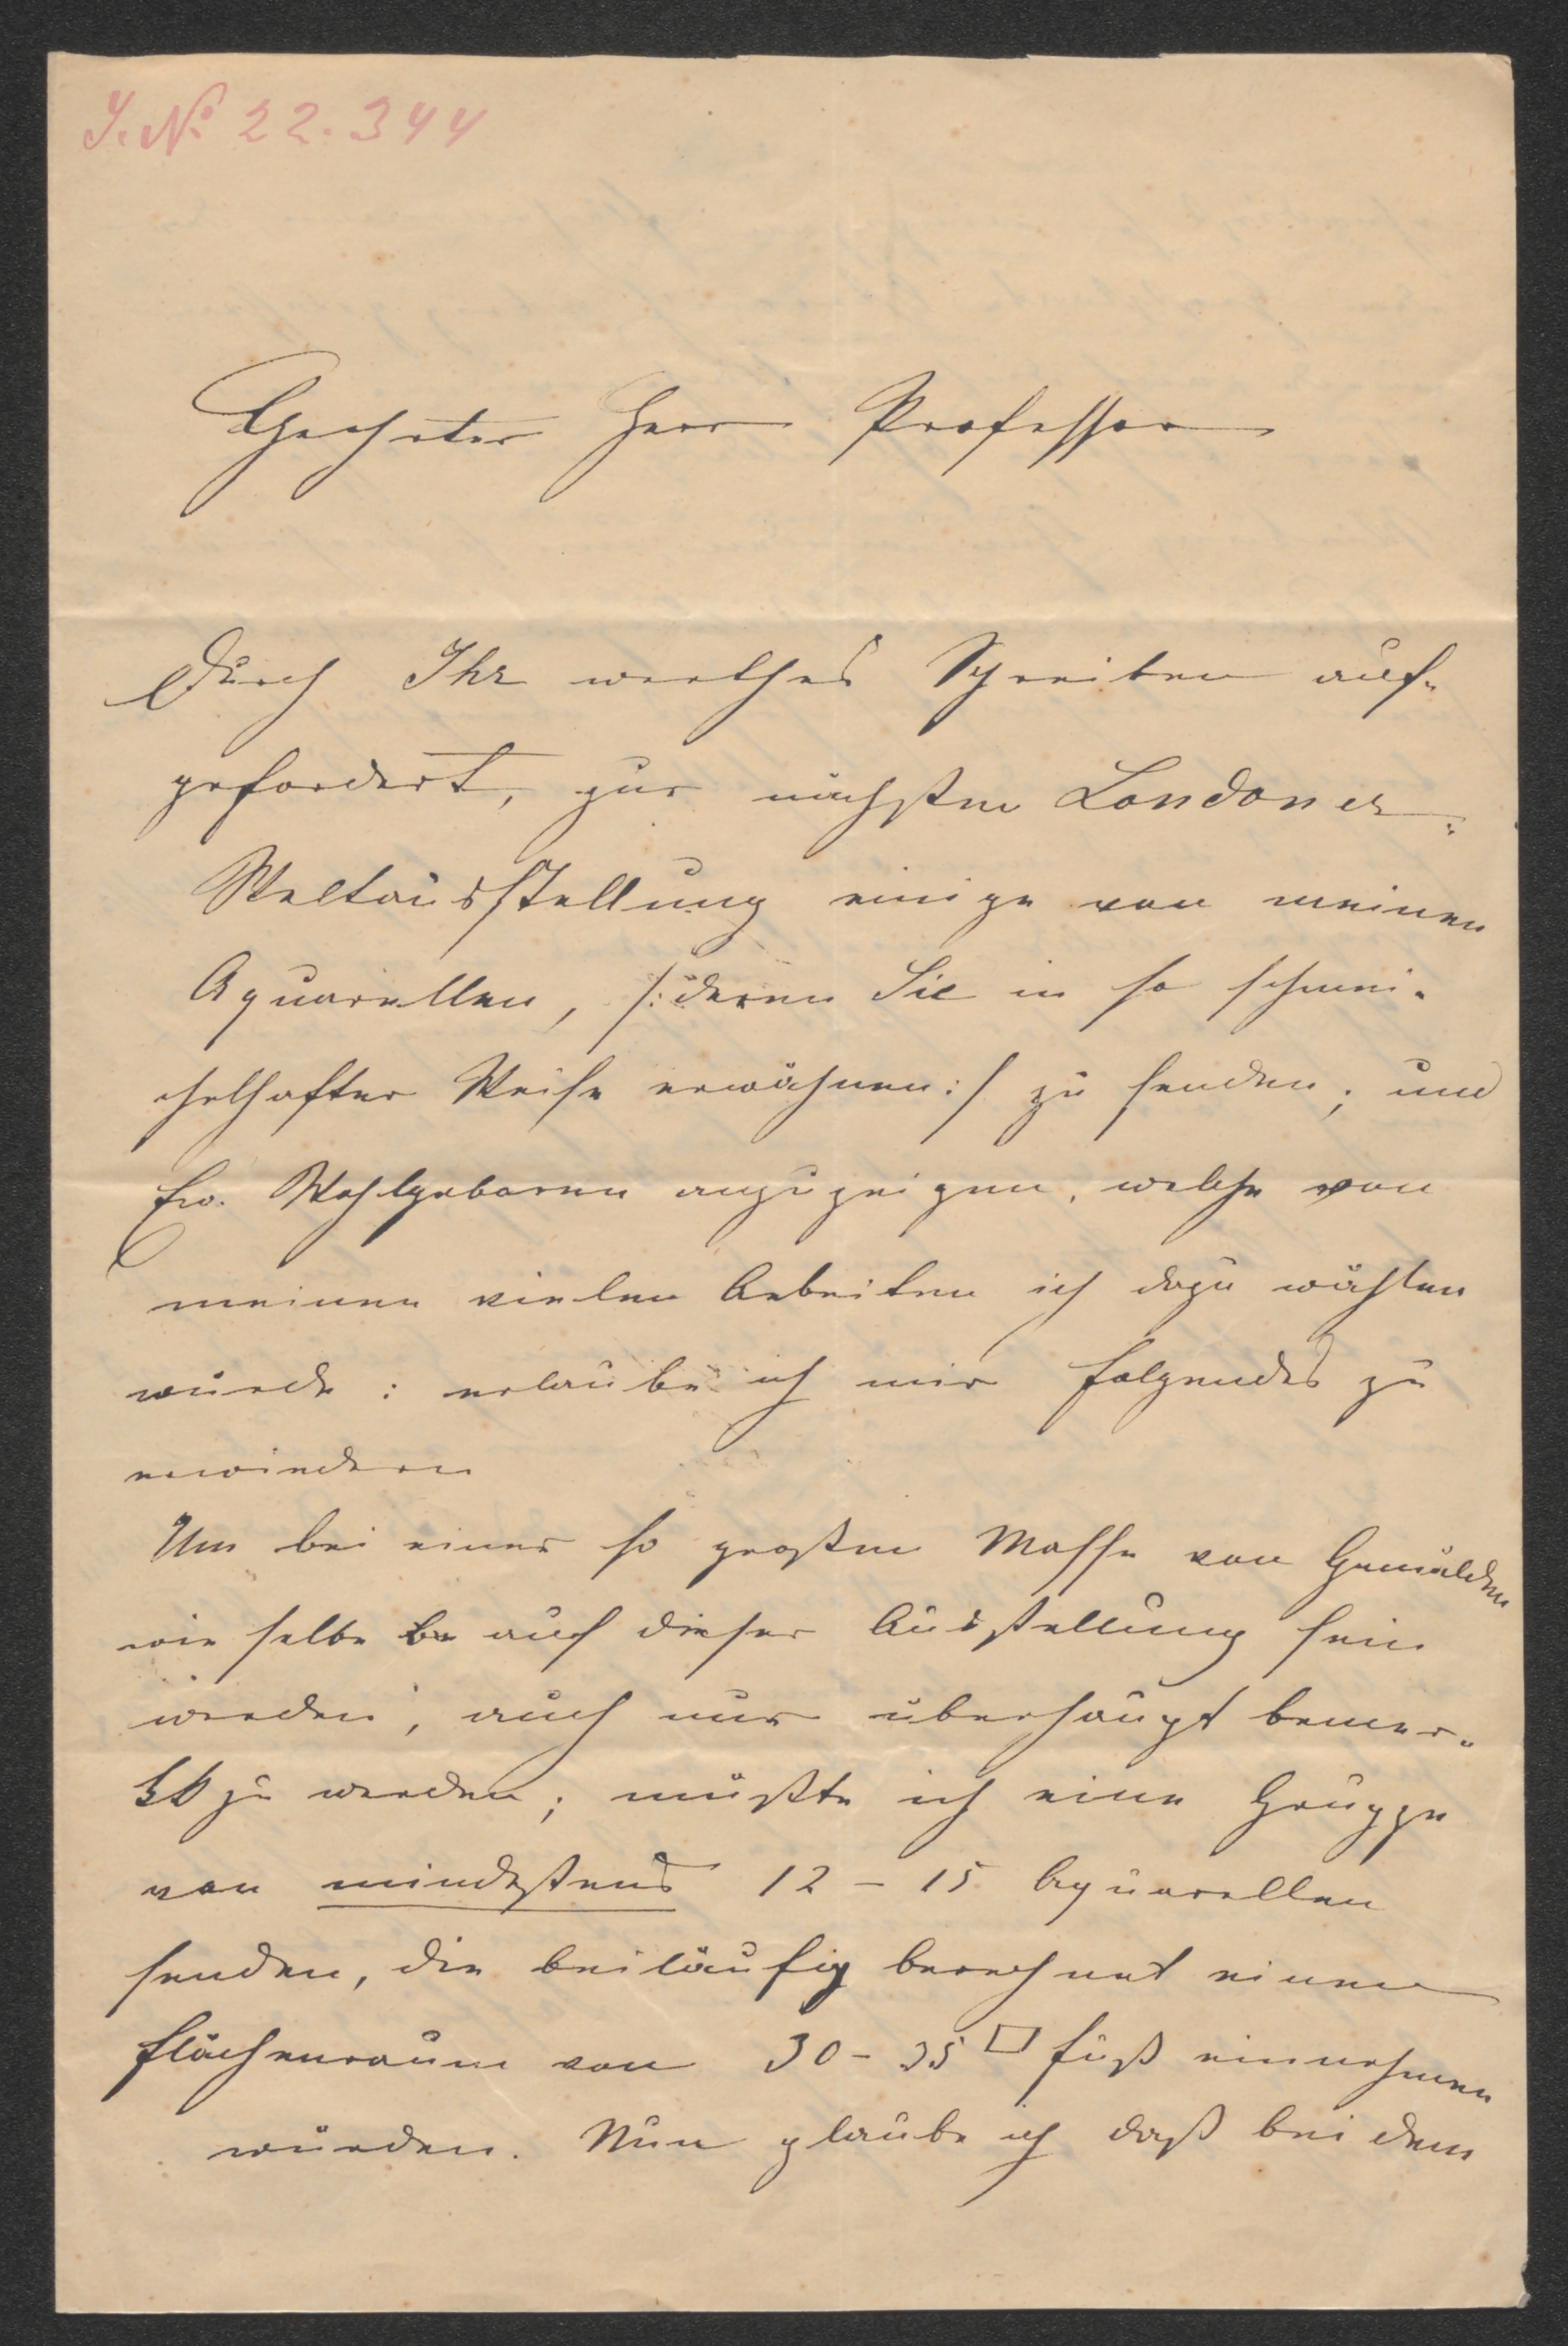 J. No 22.344
Geehrter Herr Professor
Durch Ihr werthes Schreiben auf-
gefordert, zur nächsten Londoner-
Weltausstellung einige von meinen
Aquarellen, /: deren Sie in so schmei-
chelhafter Weise erwähnen :/ zu senden; und
Ew. Wohlgeboren anzuzeigen, welche von
meinen vielen Arbeiten ich dazu wählen
würde : erlaube ich mir folgendes zu
erwiedern
Um bei einer so großen Masse von Gemälden
wie selbe auf dieser Ausstellung sein
werden, auch nur überhaupt bemer-
kt zu werden; müßte ich eine Gruppe
von mindestens 12 - 15 Aquarellen
senden, die beiläufig berechnet einen
Flächenraum von 30 - 35 □ Fuß einnehmen
würden. Nun glaube ich daß bei dem